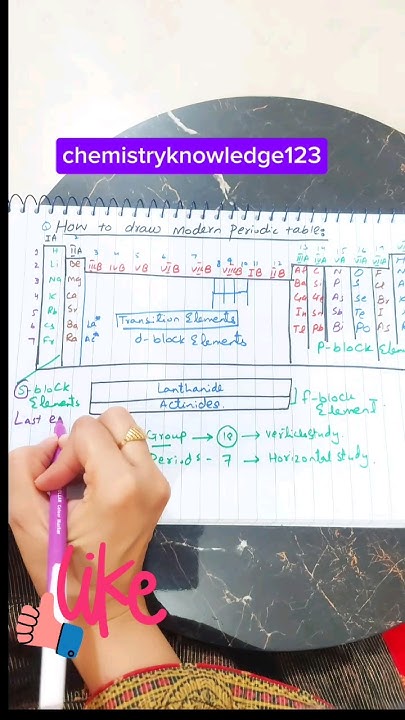 chemistryknowledge123
Q How to draw modern Periodic table:
IA 2 13 14 15 16 17
1 H IIA 3 4 5 6 7 8 9 10 11 12 IIIA IVA VA VIA VIIA
2 Li Be IIIB IVB VB VIB VIIB VIIIB IB IIB C N O F
3 Na Mg Si P S
4 K Ca As Se Br
5 Rb Sr Transition Elements In Sn Sb Te I
6 Cs Ba La* d-block Elements Tl Pb Bi Po As
7 Fr Ra Ac* P-block Element
S-block Lanthanide f-block
Elements Actinides. Element.
Last e
Group → 18 → verticle study.
Periods - 7 → Horizontal study.
like